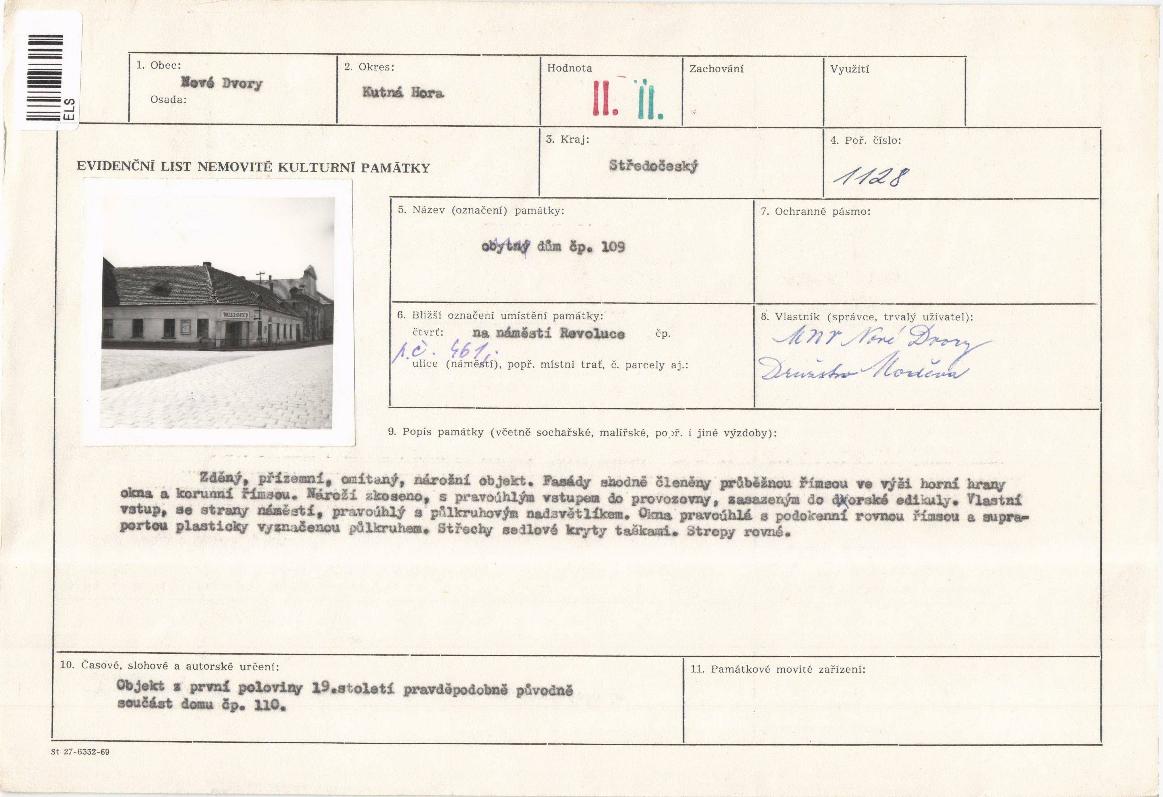 ELS
1. Obec:
Nové Dvory
Osada:
2. Okres:
Kutná Hora
Hodnota
II. II.
Zachování
Využití
3. Kraj:
Středočeský
4. Poř. číslo:
1128
EVIDENČNÍ LIST NEMOVITÉ KULTURNÍ PAMÁTKY
5. Název (označení) památky:
obytný dům čp. 109
7. Ochranné pásmo:
6. Bližší označení umístění památky:
čtvrť: na náměstí Revoluce čp.
p.č. 461,
ulice (náměstí), popř. místní trať, č. parcely aj.:
8. Vlastník (správce, trvalý uživatel):
MNV Nové Dvory
Družstvo
9. Popis památky (včetně sochařské, malířské, popř. i jiné výzdoby):
Zděný, přízemní, omítaný, nárožní objekt. Fasády shodně členěny průběžnou římsou ve výši horní hrany
okna a korunní římsou. Nároží zkoseno, s pravoúhlým vstupem do provozovny, zasazeným do dórské edikuly. Vlastní
vstup, se strany náměstí, pravoúhlý s půlkruhovým nadsvětlíkem. Okna pravoúhlá s podokenní rovnou římsou a supra-
portou plasticky vyznačenou půlkruhem. Střechy sedlové kryty taškami. Stropy rovné.
10. Časové, slohové a autorské určení:
Objekt z první poloviny 19.století pravděpodobně původně
součást domu čp. 110.
11. Památkové movité zařízení:
St 27-6332-69